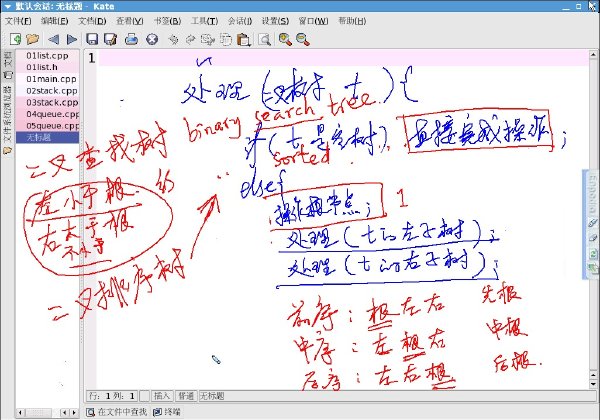 默认会话: 无标题 - Kate
文件(F) 编辑(E) 文档(D) 查看(V) 书签(B) 工具(T) 会话(I) 设置(S) 窗口(W) 帮助(H)
文档
文件系统浏览器
01list.cpp
01list.h
01main.cpp
02stack.cpp
03stack.cpp
04queue.cpp
05queue.cpp
无标题
1
处理 (二叉树 t) {
binary search tree
if (t 是空树) 直接完成操作;
sorted
else{
操作根节点; 1
处理 (t的左子树);
处理 (t的右子树);
二叉查找树
左小于根 的
右大于根
不小于
二叉排序树
前序: 根左右 先根
中序: 左根右 中根
后序: 左右根 后根
行: 1 列: 1 插入 普通 无标题
在文件中查找 终端